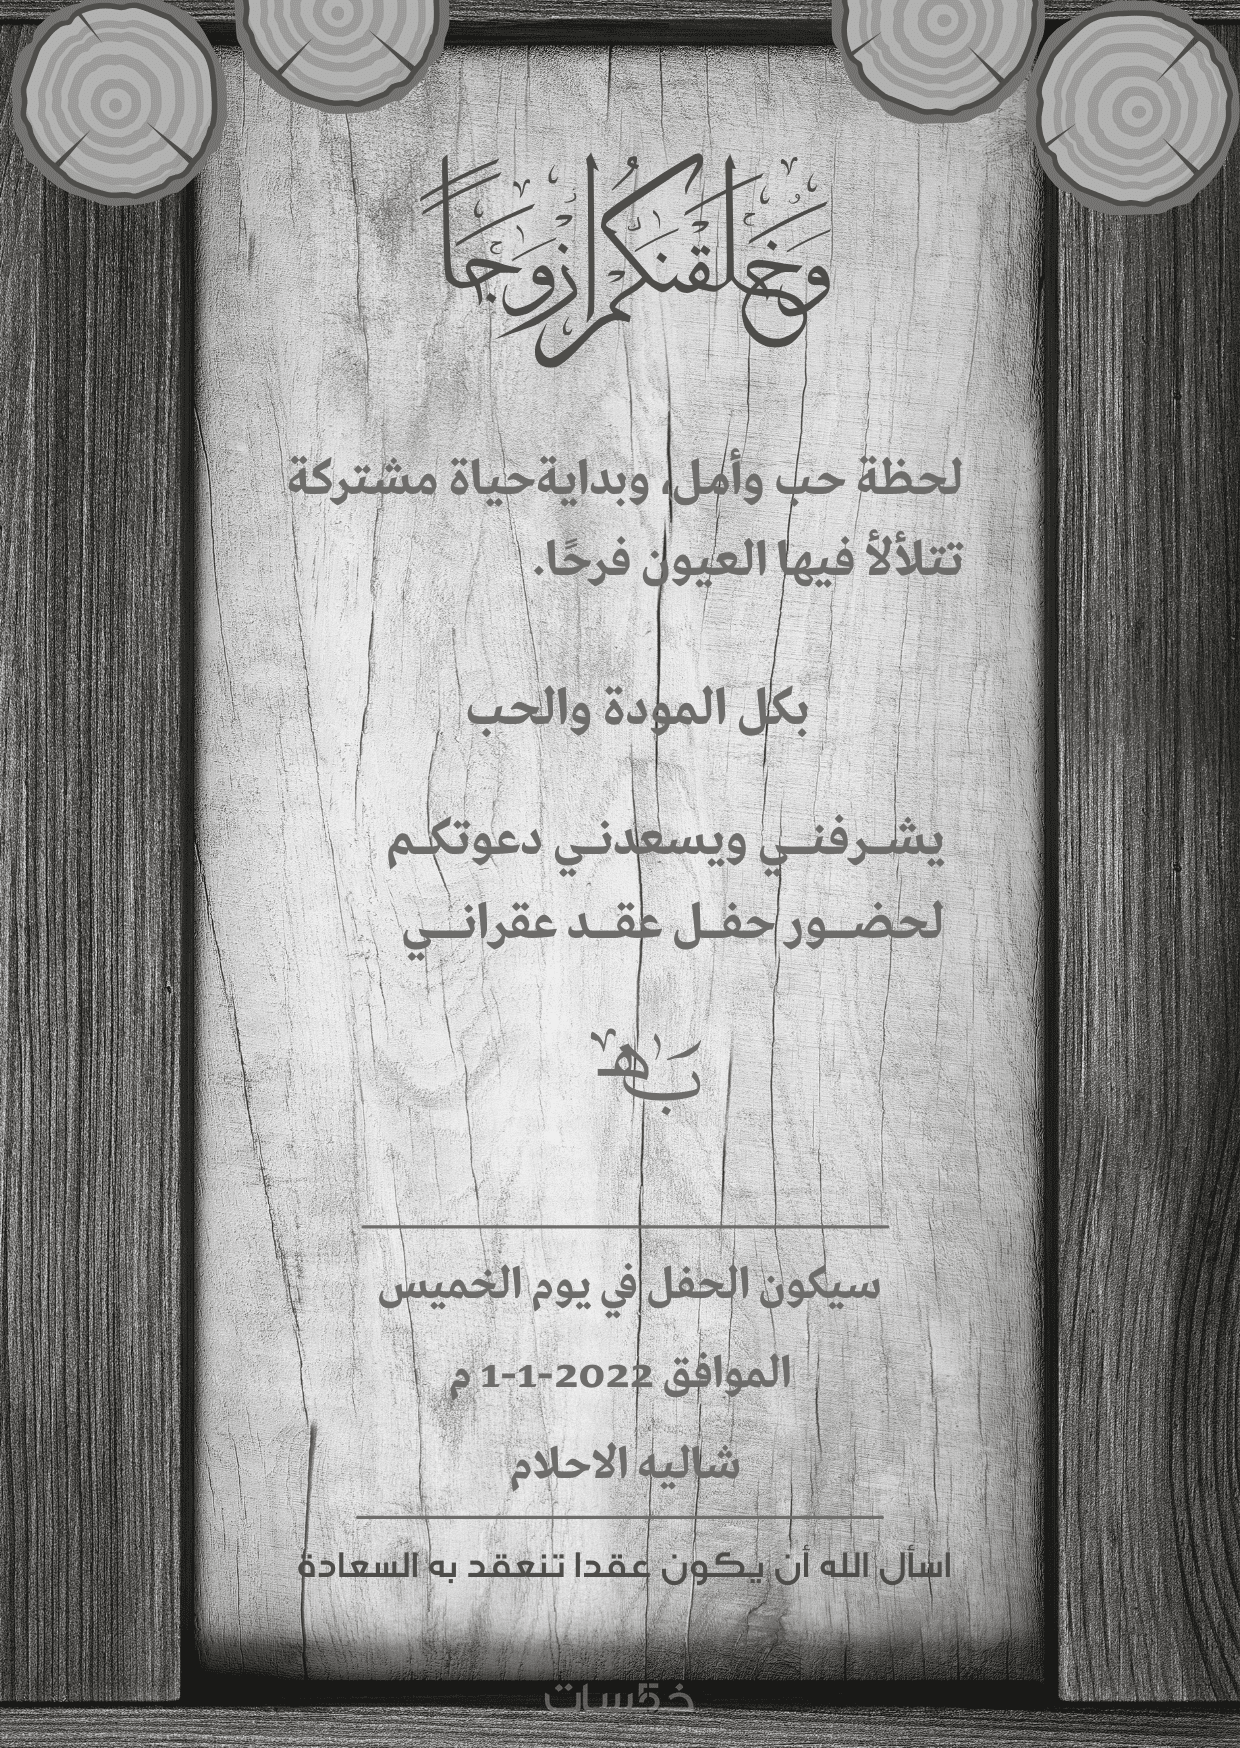 وَخَلَقْنَٰكُمْ أَزْوَٰجًا
لحظة حب وأمل، وبدايةحياة مشتركة
تتلألأ فيها العيون فرحًا.
بكل المودة والحب
يشـرفنــي ويسعدنـي دعوتكـم
لحضــور حفـل عقــد عقرانــي
سيكون الحفل في يوم الخميس
الموافق 2022-1-1 م
شاليه الاحلام
اسأل الله أن يكون عقدا تنعقد به السعادة
خمسات